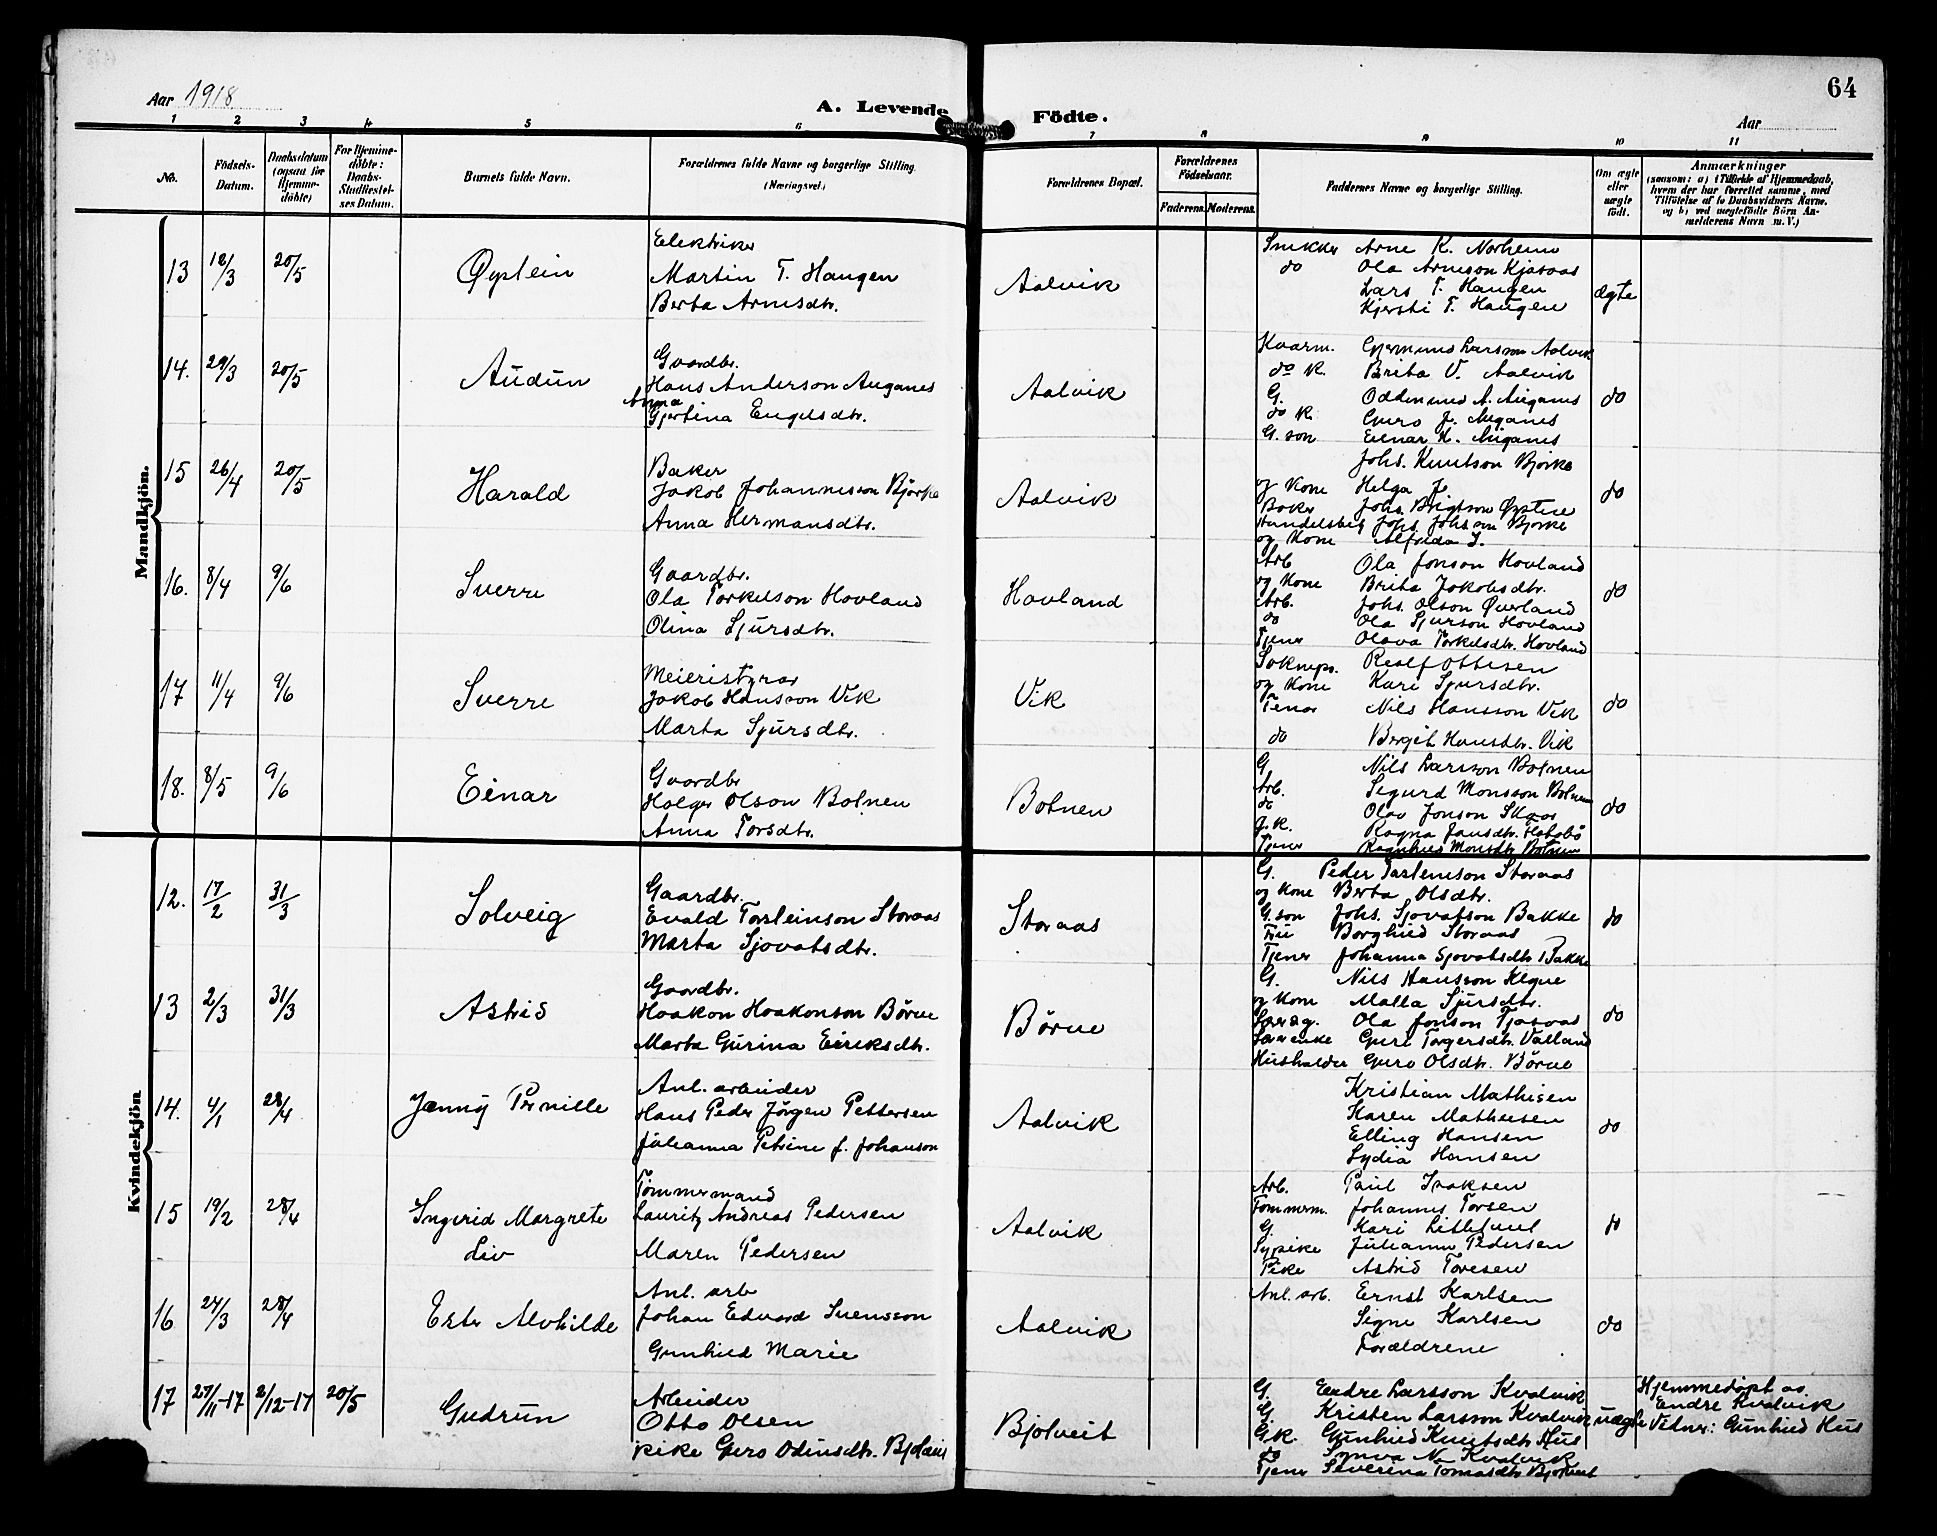 Aar 1918
A. Levende Födte.
64
Aar
1 2 3 4 5 6 7 8 9 10 11
No.
Födsels-Datum.
Daabsdatum (ogsaa for Hjemme-döbte)
For Hjemme-döbte: Daabs-Stadfæstel-ses Datum.
Barnets fulde Navn.
Forældrenes fulde Navne og borgerlige Stilling. (Næringsvei.)
Forældrenes Bopæl.
Forældrenes Födselsaar.
Faderens. Moderens.
Faddernes Navne og borgerlige Stilling.
Om ægte eller uægte födt.
Anmærkninger
(saasom: a) i Tilfælde af Hjemmedaab, hvem der har forrettet samme, med Tilföielse af to Daabsvidners Navne, og b) ved uægtefödte Börn An-melderens Navn m.V.)
Mandkjön.
13 18/3 20/5 Øystein
Elektriker
Martin T. Haugen
Berta Arnesdtr.
Aalvik
Snikker Arne K. Norheim
do Ola Arneson Kjosaas
Lars T. Haugen
Kjersti T. Haugen
ægte
14. 29/3 20/5 Audun
Gaardbr.
Hans Anderson Auganes
Anna
Gjertina Engelsdtr.
Aalvik
Kaarm. Gjermund Larsson Aalvik
do K. Brita V. Aalvik
G. Oddmund A. Auganes
do K. Guro J. Auganes
G. son Einar H. Auganes
do
15 26/4 20/5 Harald
Baker
Jakob Johannesson Bjørke
Anna Hermansdtr.
Aalvik
Johs. Knutson Bjørke
og Kone Helga J.
Baker Johs. Brigtson Øystese
Handelsbetj Johs. Johsson Bjørke
og Kone Alfrida J.
do
16. 8/4 9/6 Sverre
Gaardbr.
Ola Torkelson Hovland
Olina Sjursdtr.
Hovland
Arb Ola Jonson Hovland
og Kone Brita Jakobsdtr.
Arb. Johs. Olson Øverland
do Ola Sjurson Hovland
Tjener Olava Torkelsdtr. Hovland
do
17 11/4 9/6 Sverre
Meieristyrar
Jakob Hansson Vik
Marta Sjursdtr.
Vik
Soknepr. Realf Ottesen
og Kone Kari Sjursdtr.
Tenar Nils Hansson Vik
do Bergit Hansdtr. Vik
do
18. 8/5 9/6 Einar
Gaardbr
Holger Olson Botnen
Anna Torsdtr.
Botnen
G Nils Larsson Botnen
Arb. Sigurd Monsson Botnen
do Olav Jonson Skaar
g.K. Ragna Jansdtr.
Tjener Ragnhild Monsdtr Botnen
do
Kvindekjön
12. 17/2 31/3 Solveig
Gaardbr.
Evald Torsteinson Storaas
Marta Sjovatsdtr.
Storaas
G. Peder Torsteinson Storaas
og Kone Berta Olsdtr.
G. son Johs. Sjovatson Bakke
Fru Borghild Storaas
Tjener Johanna Sjovatsdtr Bakke
do
13 2/3 31/3 Astrid
Gaardbr.
Haakon Haakonson Børve
Marta Gurina Eiriksdtr.
Børve
G. Nils Hansson
og Kone Malla Sjursdtr.
Ola Jonson
Guri Torgersdtr. Valland
Husholder Guro Olsdtr. Børve
do
14. 4/1 28/4 Jenny Pernille
Anl. arbeider
Hans Peder Jørgen Pettersen
Julianna Petrine f. Johanson
Aalvik
Kristian Mathisen
Karen Mathiesen
Elling Hansen
Lydia Hansen
do
15 19/2 28/4 Ingerid Margrete
Liv
Tømmermand
Lauritz Andreas Pedersen
Maren Pedersen
Aalvik
Arb. Paul Isaksen
Tømmerm. Johannes Torsen
G. Kari Litletun
Sypike Julianne Pedersen
Pike Astrid Toresen
do
16 24/3 28/4 Ester Alvhilde
Anl. arb
Johan Edvard Svensson
Gunhild Marie
Aalvik
Anl. arb. Ernst Karlsen
Signe Karlsen
Forældrene
do
17 27/11-17 2/12-17 20/5 Gudrun
Arbeider
Otto Olsen
pike Guro Odinsdtr. Bjolveit
Bjolveit
G. Endre Larsson Kvalvik
G. Kristen Larsson Kvalvik
G.K. Gunhild Knutsdtr Hus
do Synva N. Kvalvik
Tjener Severina Tomasdtr Bjolveit
uægte
Hjemmedøpt av
Endre Kvalvik
Vidner: Gunhild Hus